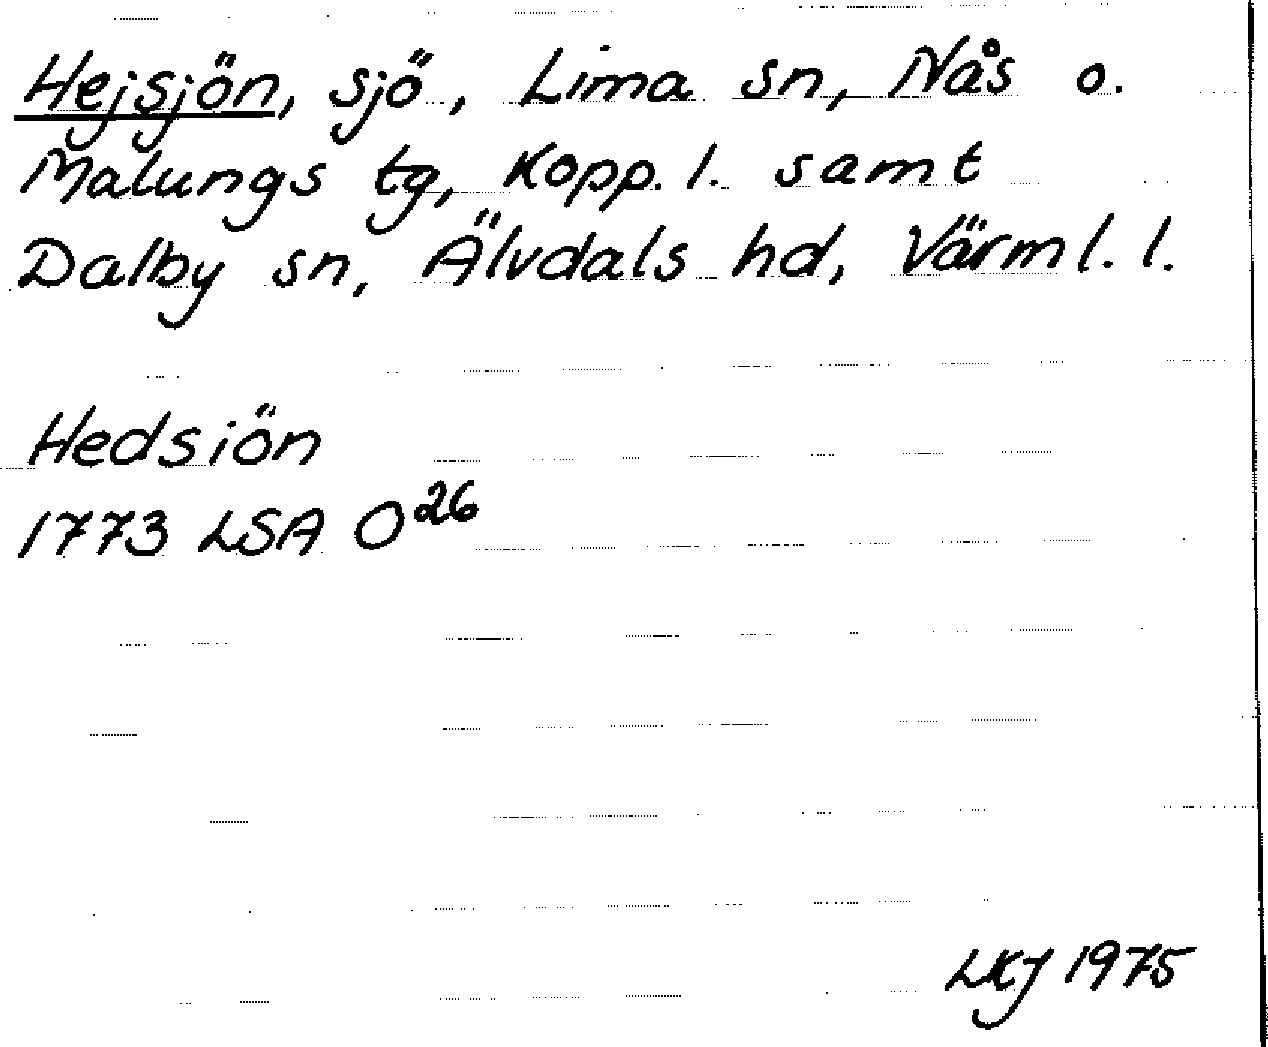 Hejsjön, sjö, Lima sn, Nås o.
Malungs tg, Kopp. l. samt
Dalby sn, Älvdals hd, Värml. l.
Hedsiön
1773 LSA O26
LKJ 1975